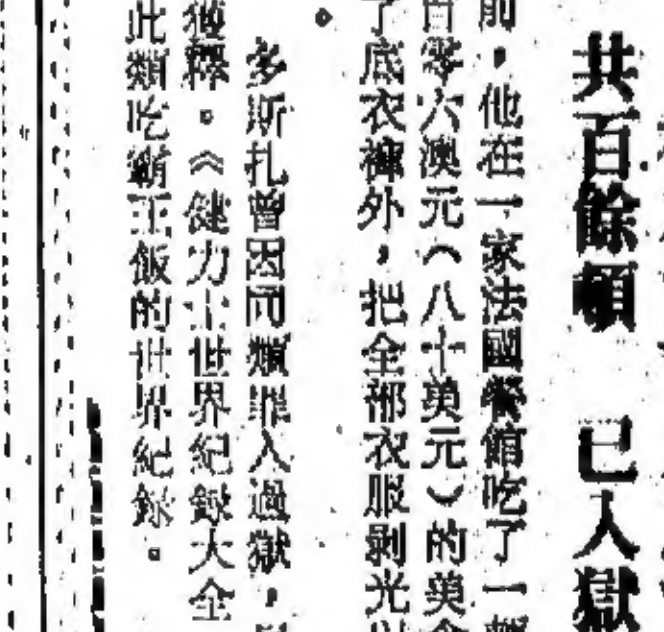 共百餘頓 已入獄
前，他在一家法國餐館吃了一頓
百零六澳元（八十美元）的美食
了底衣褲外，把全部衣服剝光以
。
多斯扎曾因同類罪入過獄，
獲釋。《健力士世界紀錄大全
此類吃霸王飯的世界紀錄。